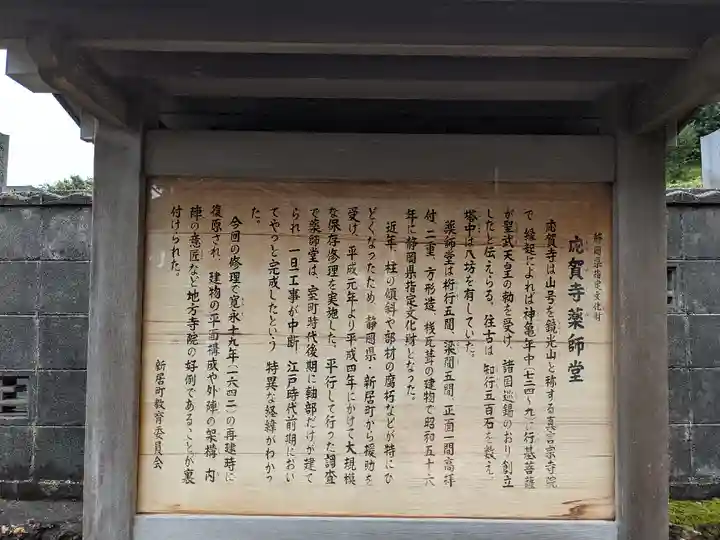 静岡県指定文化財
応賀寺薬師堂
応賀寺は山号を鏡光山と称する真言宗寺院
で、縁起によれば神亀年中(七二四〜九)に行基菩薩
が聖武天皇の勅を受け、諸国巡錫のおり創立
したと伝えらる。往古は知行五百石を数え、
塔中は八坊を有していた。
薬師堂は桁行五間、梁間五間、正面一間高拝
付、二重、方形造、桟瓦葺の建物で昭和五十六
年に静岡県指定文化財となった。
近年、柱の傾斜や部材の腐朽などが特にひ
どくなったため、静岡県・新居町から援助を
受け、平成元年より平成四年にかけて大規模
な保存修理を実施した。平行して行った調査
で薬師堂は、室町時代後期に軸部だけが建て
られ、一旦工事が中断、江戸時代前期におい
てやっと完成したという、特異な経緯がわかっ
た。
今回の修理で寛永十九年(一六四二)の再建時に
復原され、建物の平面構成や外陣の架構、内
陣の意匠など地方寺院の好例であることが裏
付けられた。
新居町教育委員会